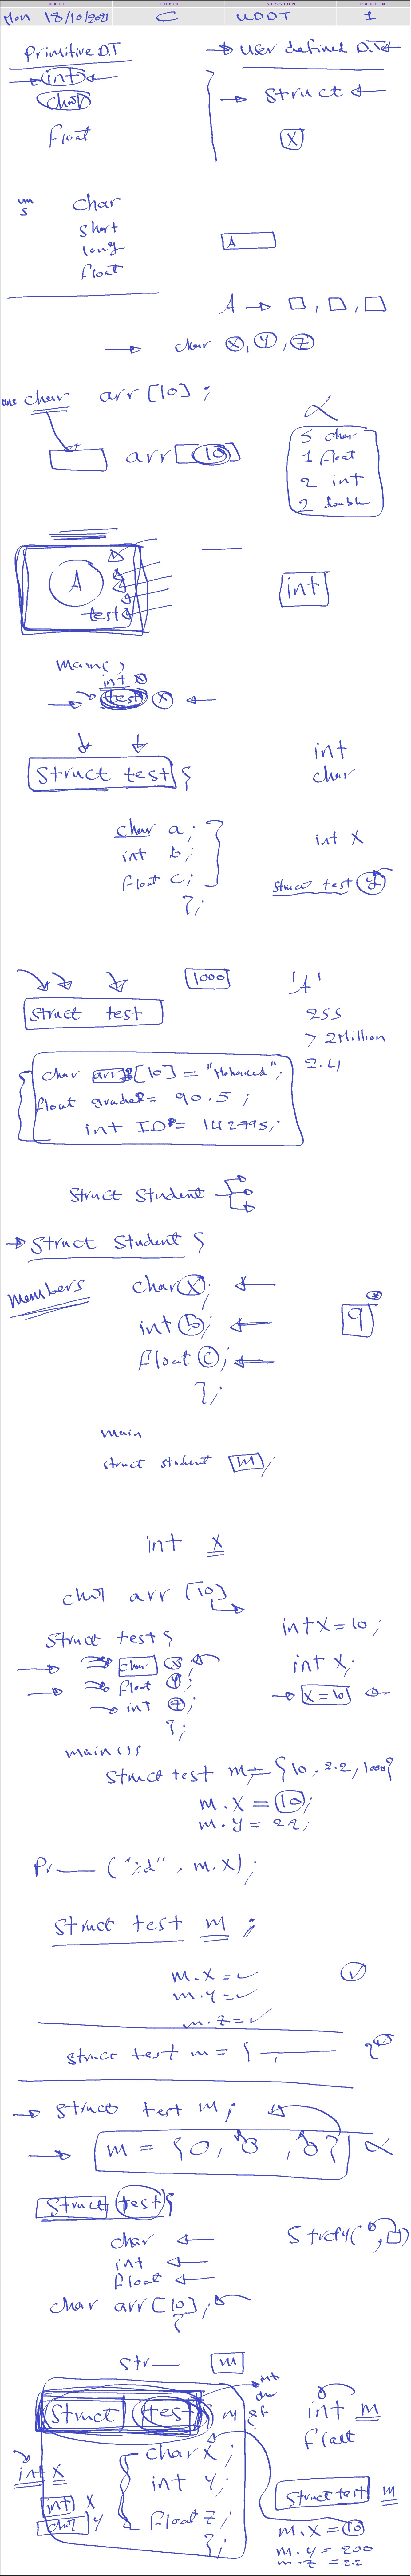 DATE TOPIC SESSION PAGE N.
Mon 18/10/2021 C UDDT 1
Primitive D.T → User defined D.T
→ int ← → struct ←
char
float X
char
short
long A
float
A → □, □, □
→ char X, Y, Z
char arr [10] ;
arr [10]
5 char
1 float
2 int
2 double
A
test
int
main( )
int X
→ test X ←
struct test { int
char
char a; int X
int b;
float c; struct test y
};
1000 'A'
struct test 255
> 2 Million
2.4
char arr [10] = "Mohamed";
float grade = 90.5 ;
int ID = 142795;
struct student
→ struct student {
members char X; ←
int b; ← 9
float c; ←
};
main
struct student m;
int X
char arr [10]
struct test { int X = 10;
→ char X; int X;
→ float Y; → X = 10 ←
→ int Z;
};
main( ) {
struct test m = {10, 2.2, 1000}
m.X = 10;
m.Y = 2.2;
Pr— ("%d", m.X);
struct test m ;
m.X = ✓
m.Y = ✓
m.Z = ✓
struct test m = { , }
→ struct test m; ←
→ m = {0, 0, 0}
struct test {
char ← Strcpy( , )
int ←
float ←
char arr [10];
}
str— m
struct test { int m
float
char X;
int X int Y;
int X float Z; struct test m
char Y }; m.X = 10
m.Y = 200
m.Z = 2.2